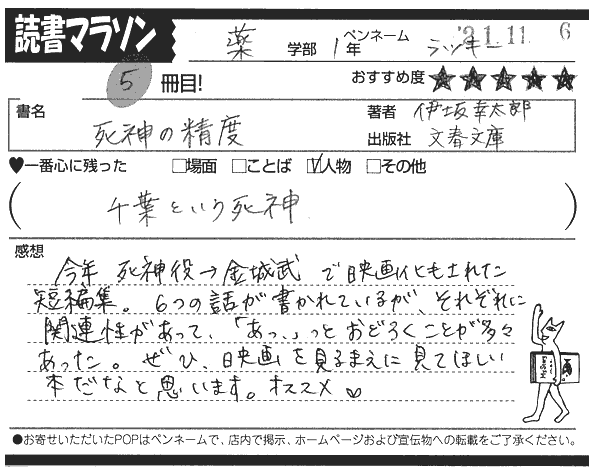 読書マラソン
薬 学部 1年 ペンネーム ラッキー '21.11 6
5 冊目! おすすめ度 ★★★★★
書名 死神の精度
著者 伊坂幸太郎
出版社 文春文庫
♥一番心に残った □場面 □ことば ☑人物 □その他
(千葉という死神)
感想
今年 死神役→金城武 で映画化もされた
短編集。6つの話が書かれているが、それぞれに
関連性があって、「あっ、」っとおどろくことが多々
あった。ぜひ、映画を見るまえに見てほしい
本だなと思います。オススメ♡
●お寄せいただいたPOPはペンネームで、店内で掲示、ホームページおよび宣伝物への転載をご了承ください。